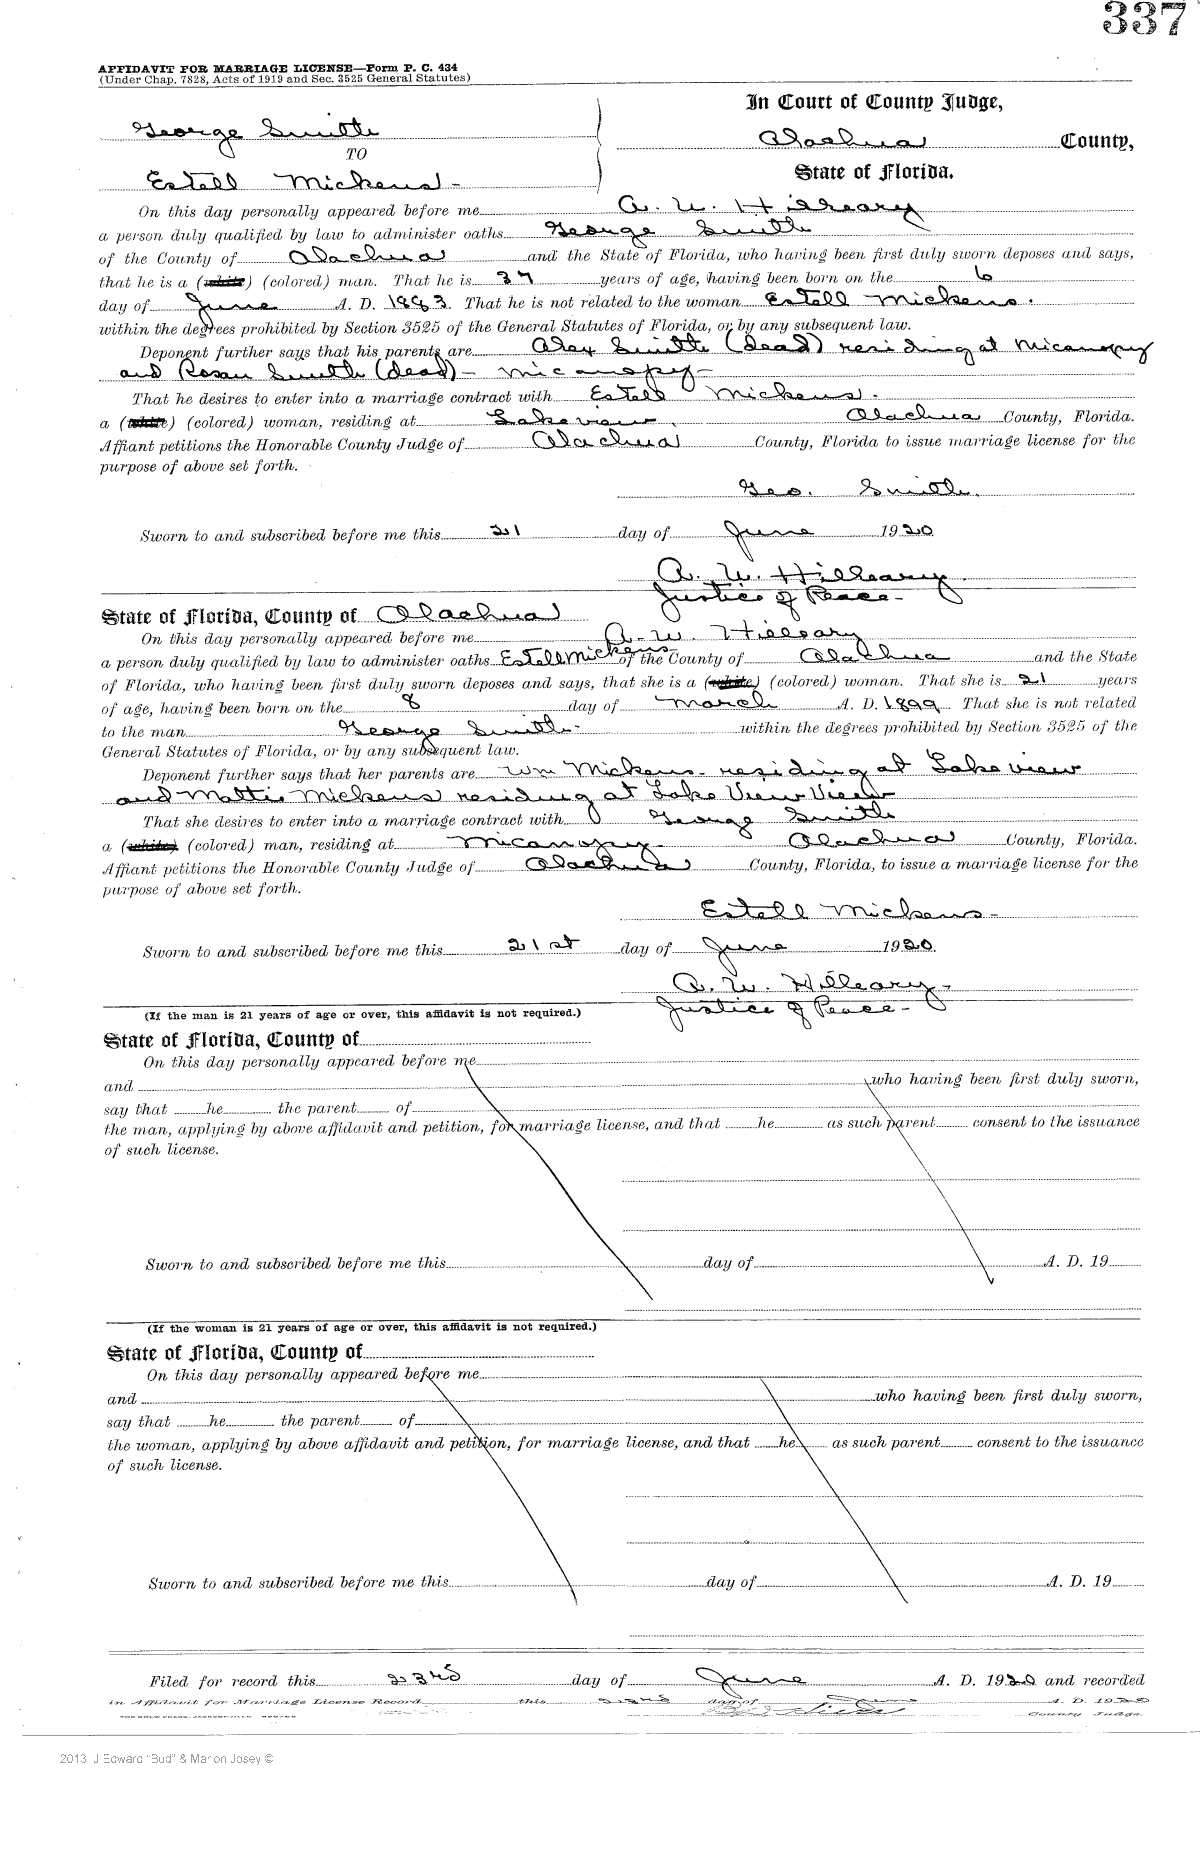 337
AFFIDAVIT FOR MARRIAGE LICENSE—Form P. C. 434
(Under Chap. 7828, Acts of 1919 and Sec. 3525 General Statutes)
In Court of County Judge,
George Smith
Alachua County,
TO
State of Florida.
Estell Mickens-
On this day personally appeared before me A. W. Hilleary
a person duly qualified by law to administer oaths George Smith
of the County of Alachua and the State of Florida, who having been first duly sworn deposes and says,
that he is a (white) (colored) man. That he is 37 years of age, having been born on the 6
day of June A. D. 1883. That he is not related to the woman Estell Mickens.
within the degrees prohibited by Section 3525 of the General Statutes of Florida, or by any subsequent law.
Deponent further says that his parents are Alex Smith (dead) residing at Micanopy
and Rosan Smith (dead)- Micanopy-
That he desires to enter into a marriage contract with Estell Mickens.
a (white) (colored) woman, residing at Lakeview, Alachua County, Florida.
Affiant petitions the Honorable County Judge of Alachua County, Florida to issue marriage license for the
purpose of above set forth.
Geo. Smith.
Sworn to and subscribed before me this 21 day of June 1920
A. W. Hilleary
Justice of Peace-
State of Florida, County of Alachua
On this day personally appeared before me A. W. Hilleary
a person duly qualified by law to administer oaths Estell Mickens of the County of Alachua and the State
of Florida, who having been first duly sworn deposes and says, that she is a (white) (colored) woman. That she is 21 years
of age, having been born on the 8 day of March A. D. 1899 That she is not related
to the man George Smith- within the degrees prohibited by Section 3525 of the
General Statutes of Florida, or by any subsequent law.
Deponent further says that her parents are Wm Mickens- residing at Lake view
and Mattie Mickens residing at Lake View View
That she desires to enter into a marriage contract with George Smith
a (white) (colored) man, residing at Micanopy- Alachua County, Florida.
Affiant petitions the Honorable County Judge of Alachua County, Florida, to issue a marriage license for the
purpose of above set forth.
Estell Mickens-
Sworn to and subscribed before me this 21st day of June 1920.
A. W. Hilleary-
Justice of Peace-
(If the man is 21 years of age or over, this affidavit is not required.)
State of Florida, County of
On this day personally appeared before me
and who having been first duly sworn,
say that he the parent of
the man, applying by above affidavit and petition, for marriage license, and that he as such parent consent to the issuance
of such license.
Sworn to and subscribed before me this day of A. D. 19
(If the woman is 21 years of age or over, this affidavit is not required.)
State of Florida, County of
On this day personally appeared before me
and who having been first duly sworn,
say that he the parent of
the woman, applying by above affidavit and petition, for marriage license, and that he as such parent consent to the issuance
of such license.
Sworn to and subscribed before me this day of A. D. 19
Filed for record this 23rd day of June A. D. 1920 and recorded
in Affidavit for Marriage License Record this 23rd day of June A. D. 1920
County Judge.
2013 J Edward "Bud" & Marion Josey ©